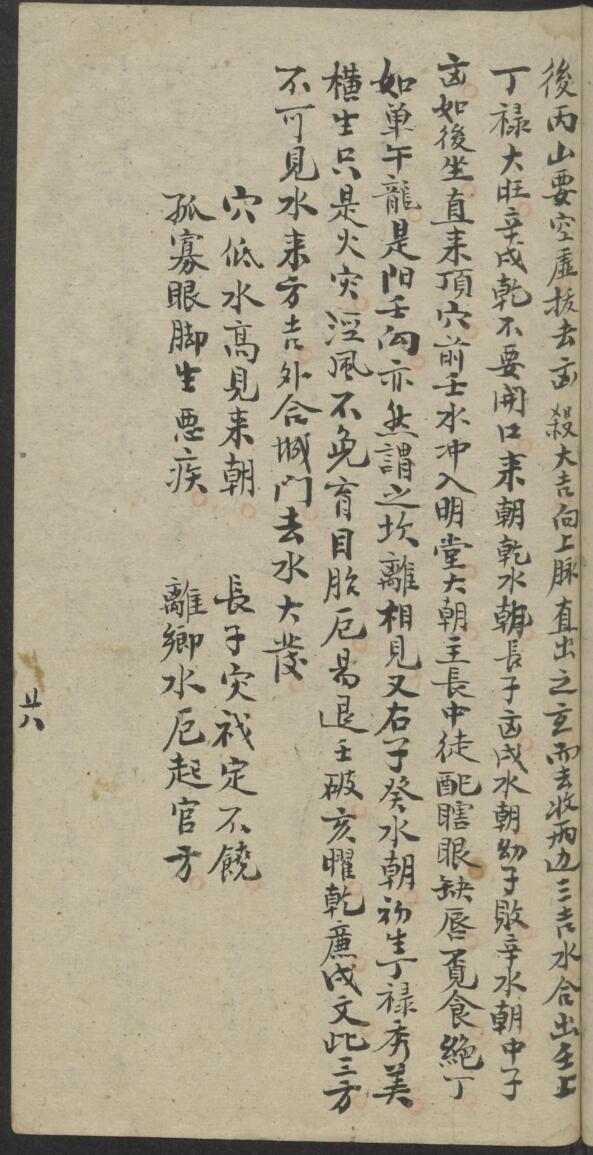 後丙山要空虛拔去凶殺大吉向上脉直出之玄而去收兩边三吉水合出壬上
丁禄大旺辛戌乾不要開口来朝乾水朝長子凶戌水朝幼子敗辛水朝中子
凶如後坐直来頂穴前壬水冲入明堂大朝主長中徒配瞎眼缺唇覓食絕丁
如单午龍是阳壬向亦然謂之坎離相見又右子癸水朝初生丁禄秀美
横生只是火灾淫風不免育目胎厄易退壬破亥曜乾廉戌文此三方
不可見水来方吉外合城門去水大發
穴低水高見来朝 長子灾祸定不饒
孤寡眼脚生悪疾 離鄉水厄起官方
廿八